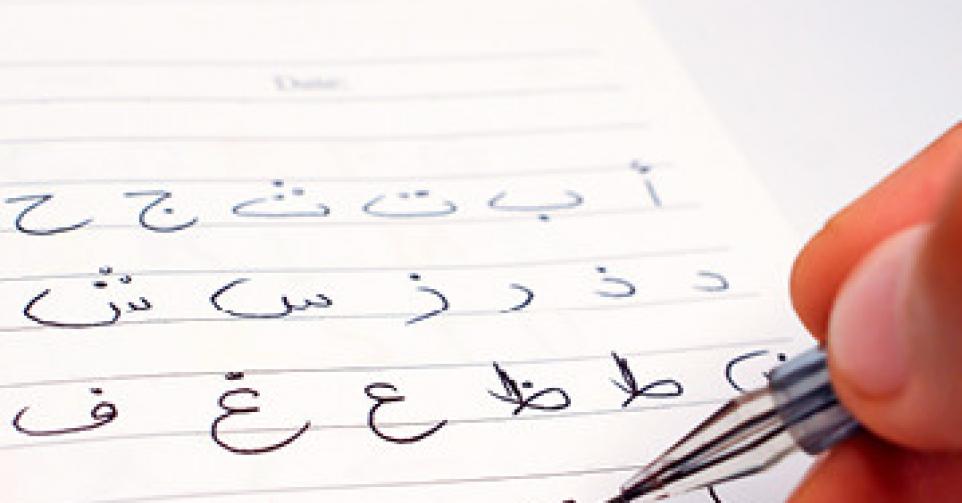 Date:
أ ب ت ث ج ح
د ذ ر ز س ش
ض ط ظ ع غ ف